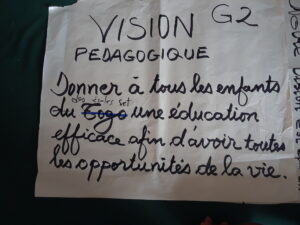 VISION G2
PEDAGOGIQUE
Donner à tous les enfants
du Togo une éducation
efficace afin d'avoir toutes
les opportunités de la vie.